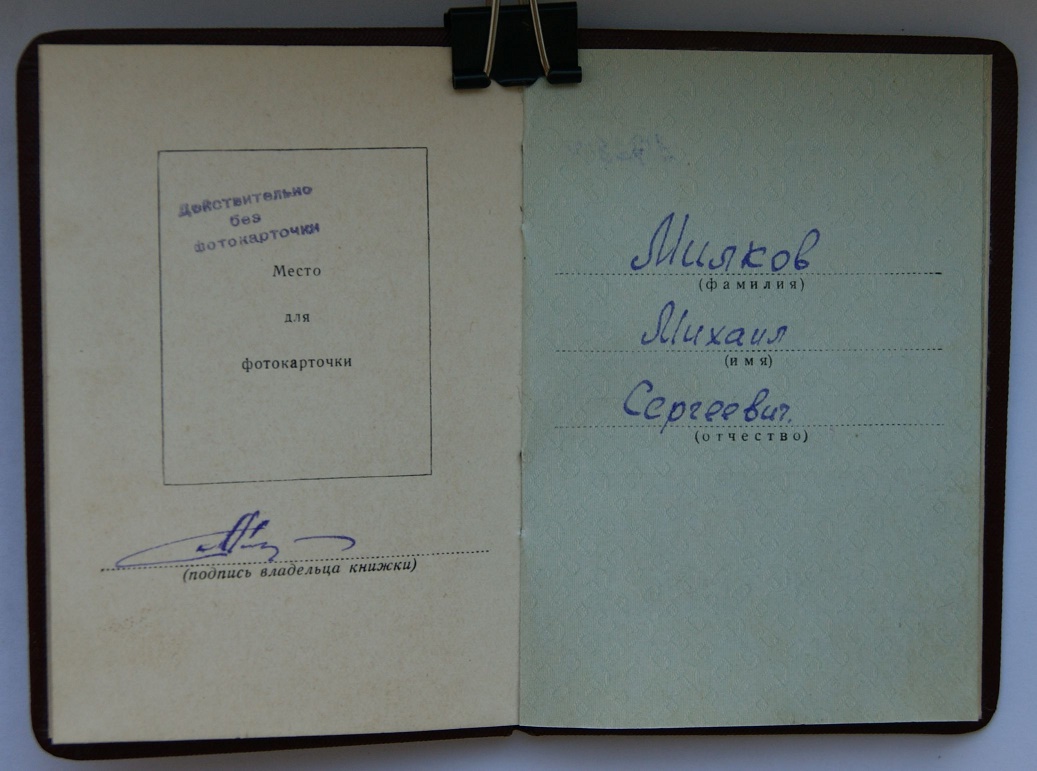 Действительно
без
фотокарточки
Место
для
фотокарточки
(подпись владельца книжки)
Милков
(фамилия)
Михаил
(имя)
Сергеевич.
(отчество)